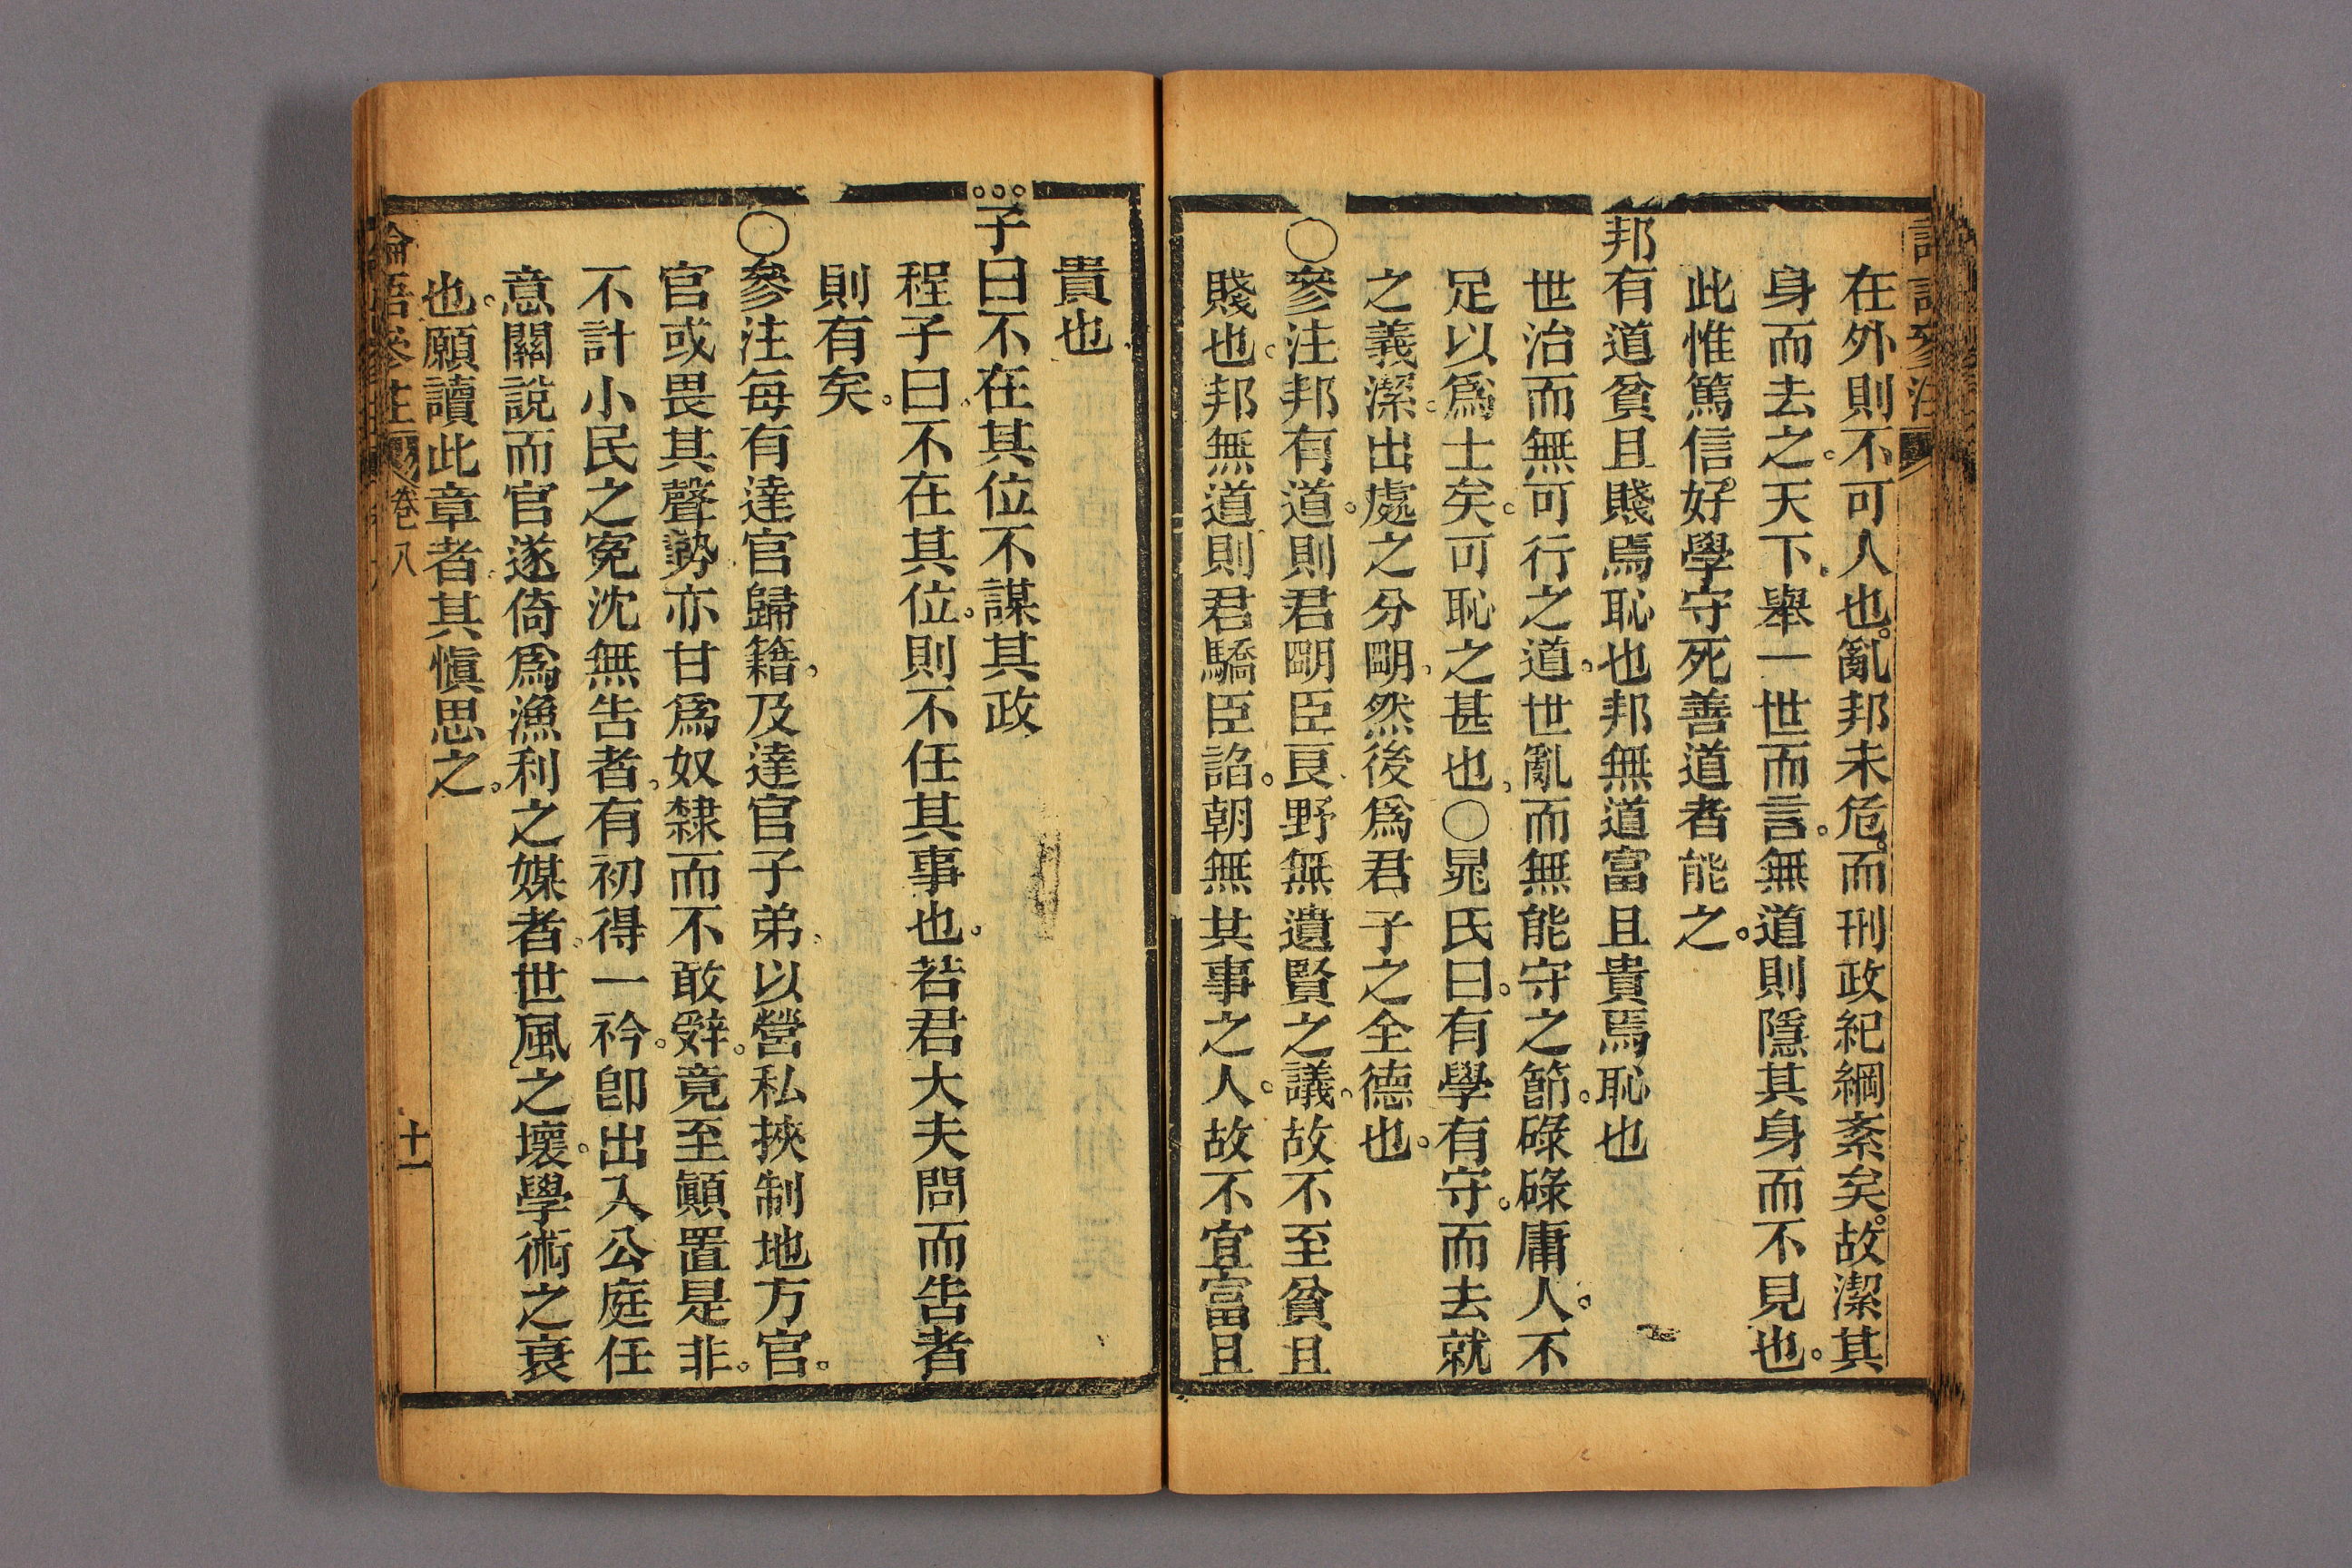 在外則不可入也。亂邦未危。而刑政紀綱紊矣。故潔其
身而去之。天下。舉一世而言。無道則隱其身而不見也。
此惟篤信好學守死善道者能之。
邦有道貧且賤焉恥也邦無道富且貴焉恥也
世治而無可行之道。世亂而無能守之節。碌碌庸人。不
足以爲士矣。可恥之甚也。○晁氏曰。有學有守。而去就
之義潔。出處之分明。然後爲君子之全德也。
○參注邦有道。則君明臣良野無遺賢之議。故不至貧且
賤也。邦無道則君驕臣諂。朝無其事之人。故不宜富且
貴也
子曰不在其位不謀其政
程子曰。不在其位。則不任其事也。若君大夫問而告者
則有矣。
○參注每有達官歸籍。及達官子弟。以營私挾制地方官。
官或畏其聲勢亦甘爲奴隸而不敢辤。竟至顚置是非。
不計小民之寃沈無告者。有初得一衿。卽出入公庭任
意關說而官遂倚爲漁利之媒者。世風之壞。學術之衰
也。願讀此章者。其愼思之。
論語參注 卷八 十一